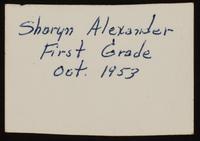 Sharyn Alexander
First Grade
Oct. 1953